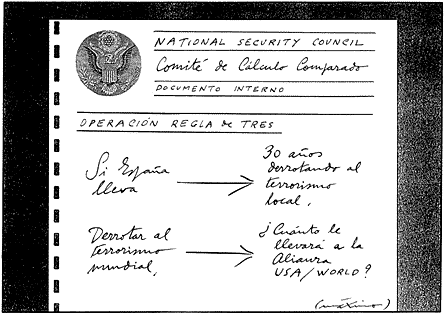 NATIONAL SECURITY COUNCIL
Comité de Cálculo Comparado
DOCUMENTO INTERNO
OPERACIÓN REGLA de TRES
Si España
lleva
30 años
derrotando al
terrorismo
local,
Derrotar al
terrorismo
mundial,
¿Cuánto le
llevará a la
Alianza
USA/WORLD?
(máximo)